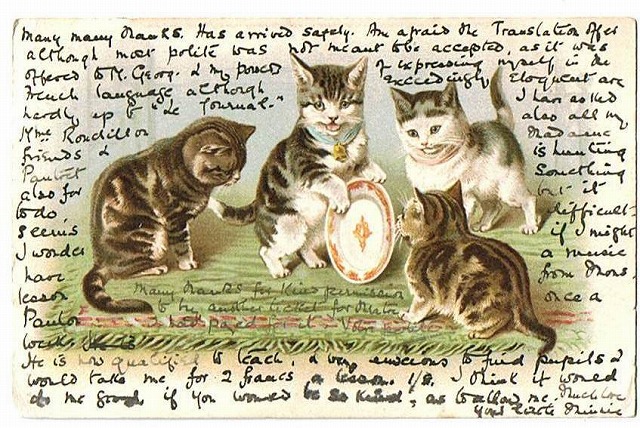 Many many thanks. Has arrived safely. Am afraid the Translation offer
although most polite was not meant to be accepted, as it was
offered to M. Georg. & my powers of expressing myself in the
French language although exceedingly Eloquent are
hardly up to "Le Journal." I have asked
Mme also all my
friends & Madame
is hunting
also for something
to do, but it
seems difficult
I wonder if I might
have a music
lesson from Mons
once a
week.
Many thanks for kind permission
to buy another ticket for
I had paid for it.
He is now qualified to teach, & very anxious to find pupils &
would take me for 2 francs a lesson. 1/8. I think it would
do me good, if you would be so kind, as to allow me. Much love
Your little